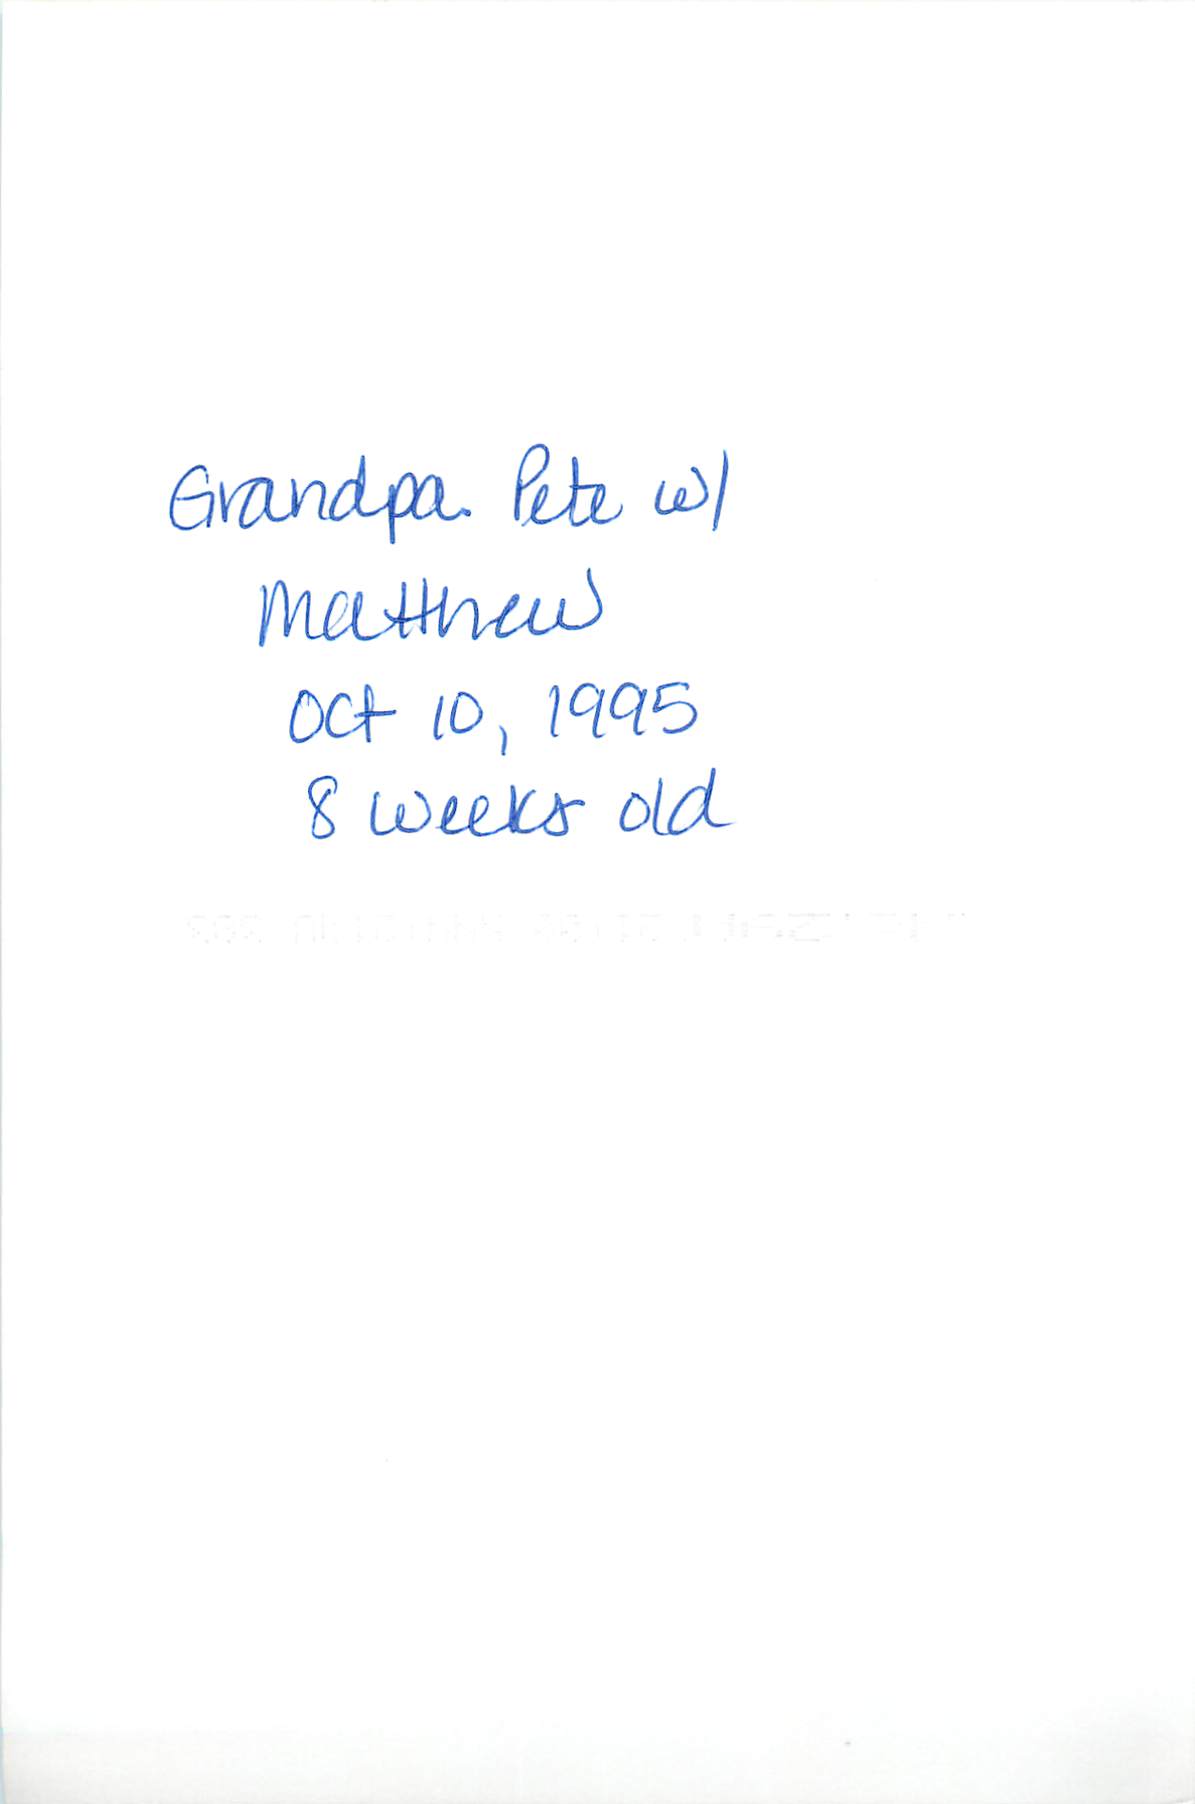 Grandpa Pete w/
Matthew
Oct 10, 1995
8 weeks old